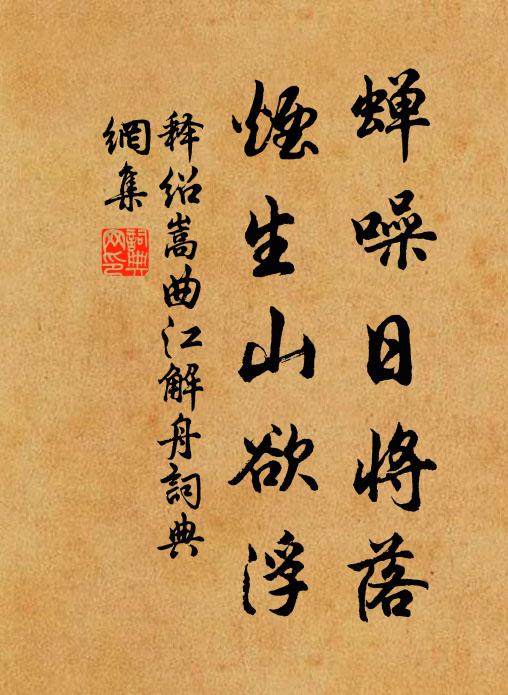 蝉噪日将落
烟生山欲浮
释绍嵩曲江解舟詞典
網集
詞典
网印